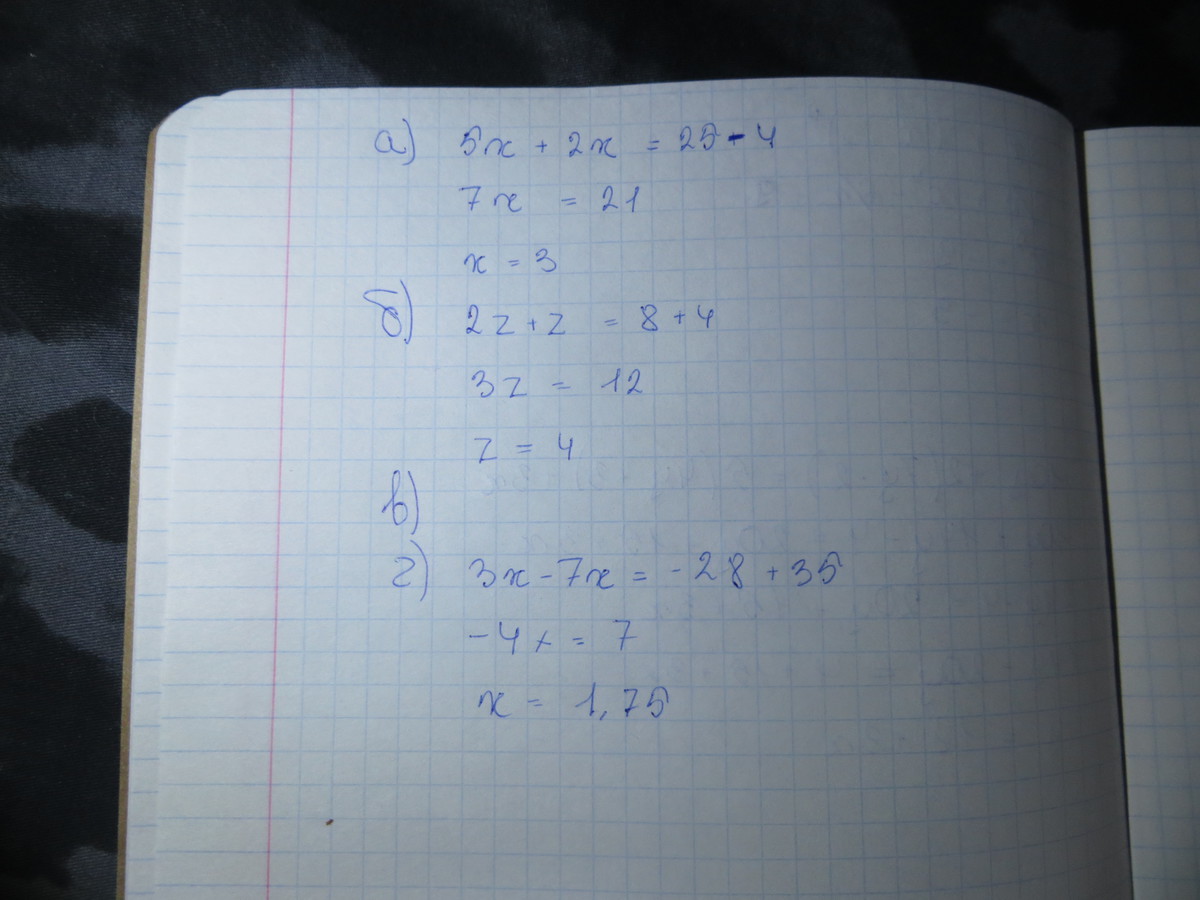 а) 5x + 2x = 25 - 4
7x = 21
x = 3
б) 2z + z = 8 + 4
3z = 12
z = 4
в)
г) 3x - 7x = -28 + 35
-4x = 7
x = 1,75